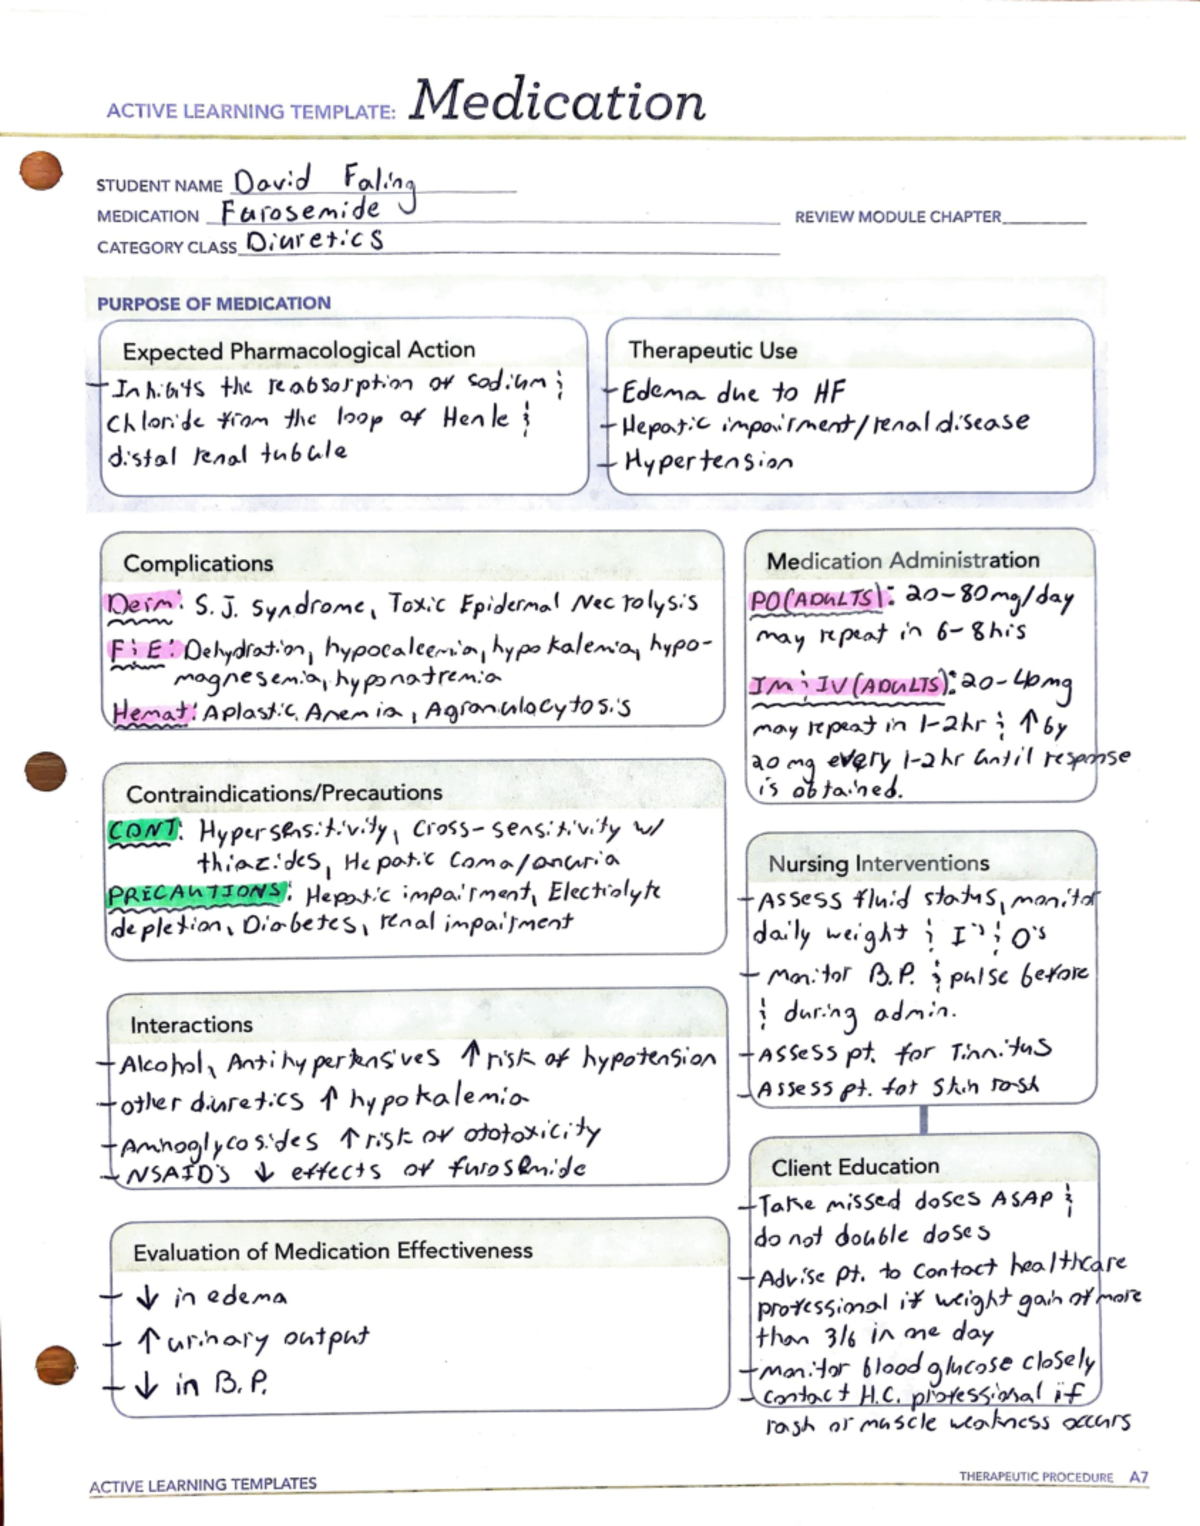 ACTIVE LEARNING TEMPLATE: Medication
STUDENT NAME David Faling
MEDICATION Furosemide
REVIEW MODULE CHAPTER
CATEGORY CLASS Diuretics
PURPOSE OF MEDICATION
Expected Pharmacological Action
- Inhibits the reabsorption of sodium &
Chloride from the loop of Henle &
distal renal tubule
Therapeutic Use
- Edema due to HF
- Hepatic impairment/renal disease
- Hypertension
Complications
Derm: S.J. Syndrome, Toxic Epidermal Necrolysis
F & E: Dehydration, hypocalcemia, hypokalemia, hypo-
magnesemia, hyponatremia
Hemat: Aplastic Anemia, Agranulocytosis
Medication Administration
PO(ADULTS): 20-80mg/day
may repeat in 6-8hrs
IM & IV(ADULTS): 20-40mg
may repeat in 1-2hr & ↑ by
20 mg every 1-2hr until response
is obtained.
Contraindications/Precautions
CONT: Hypersensitivity, Cross-sensitivity w/
thiazides, Hepatic Coma/anuria
PRECAUTIONS: Hepatic impairment, Electrolyte
depletion, Diabetes, renal impairment
Nursing Interventions
- Assess fluid status, monitor
daily weight & I's & O's
- Monitor B.P. & pulse before
& during admin.
- Assess pt. for Tinnitus
- Assess pt. for Skin rash
Interactions
- Alcohol, Antihypertensives ↑ risk of hypotension
- other diuretics ↑ hypokalemia
- Aminoglycosides ↑ risk of ototoxicity
- NSAID's ↓ effects of furosemide
Client Education
- Take missed doses ASAP &
do not double doses
- Advise pt. to contact healthcare
professional if weight gain of more
than 3lb in one day
- Monitor blood glucose closely
- Contact H.C. professional if
rash or muscle weakness occurs
Evaluation of Medication Effectiveness
- ↓ in edema
- ↑ urinary output
- ↓ in B.P.
ACTIVE LEARNING TEMPLATES
THERAPEUTIC PROCEDURE A7